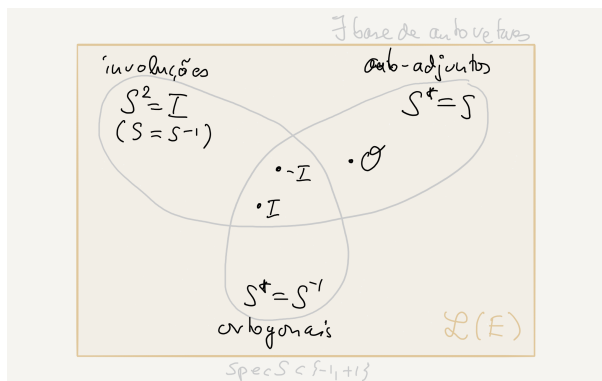 ∃ base de autovetores
involuções
auto-adjuntos
S² = I
(S = S⁻¹)
S* = S
• -I
• O
• I
S* = S⁻¹
ortogonais
L(E)
spec S ⊂ {-1, +1}